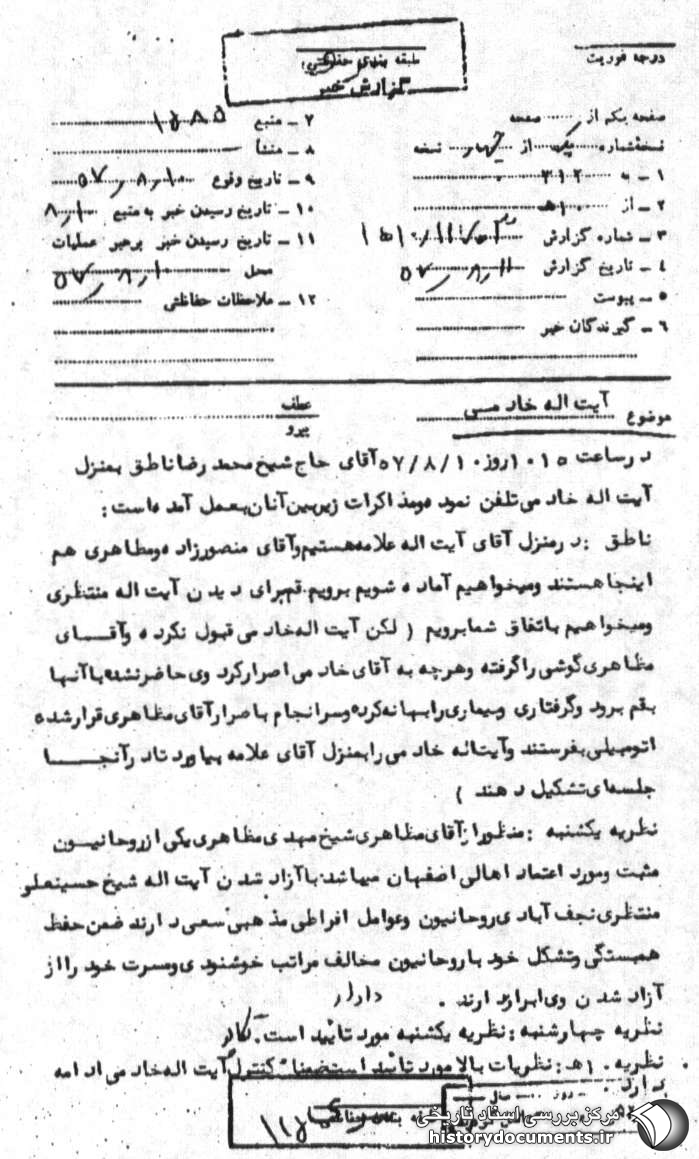 درجه فوریت
طبقه بندی حفاظتی
گزارش خبر
صفحه یکم از صفحه
نسخه شماره یک از چهار نسخه
۱ - به ۳۱۲
۲ - از ۱۰ هـ
۳ - شماره گزارش
۴ - تاریخ گزارش ۵۷٫۸٫۱۱
۵ - پیوست
۶ - گیرندگان خبر
۷ - منبع
۸ - منشأ
۹ - تاریخ وقوع ۵۷٫۸٫۱۰
۱۰ - تاریخ رسیدن خبر به منبع ۸٫۱۰
۱۱ - تاریخ رسیدن خبر برهبر عملیات
محل ۵۷٫۸٫۱۰
۱۲ - ملاحظات حفاظتی
موضوع آیت اله خادمی
عطف
پیرو
در ساعت ۱۰۱۵ روز ۵۷/۸/۱۰ آقای حاج شیخ محمد رضا ناطق بمنزل
آیت اله خادمی تلفن نموده و مذاکرات زیر بین آنان بعمل آمده است :
ناطق : در منزل آقای آیت اله علامه هستیم و آقای منصورزاده و مظاهری هم
اینجا هستند و میخواهیم آماده شویم برویم قم برای دیدن آیت اله منتظری
و میخواهیم باتفاق شما برویم ( لکن آیت اله خادمی قبول نکرده و آقــای
مظاهری گوشی را گرفته و هرچه به آقای خادمی اصرار کرد وی حاضر نشده با آنها
بقم برود و گرفتاری و بیماری را بهانه کرده و سرانجام با صرار آقای مظاهری قرار شده
اتومبیلی بفرستند و آیت اله خادمی را بمنزل آقای علامه بیاورد تا در آنجــا
جلسه ای تشکیل دهند )
نظریه یکشنبه : منظور از آقای مظاهری شیخ مهدی مظاهری یکی از روحانیــون
مثبت و مورد اعتماد اهالی اصفهان میباشد با آزاد شدن آیت اله شیخ حسینعلی
منتظری نجف آبادی روحانیون و عوامل افراطی مذهبی سعی دارند ضمن حفظ
همبستگی و تشکل خود با روحانیون مخالف مراتب خوشنودی و مسرت خود را از
آزاد شدن وی ابراز دارند .
نظریه چهارشنبه : نظریه یکشنبه مورد تائید است .
نظریه ۱۰ هـ : نظریات بالا مورد تائید است ضمنا" کنترل آیت اله خادمی ادامه
دارد .
روز سال
مرکز بررسی اسناد تاریخی
historydocuments.ir